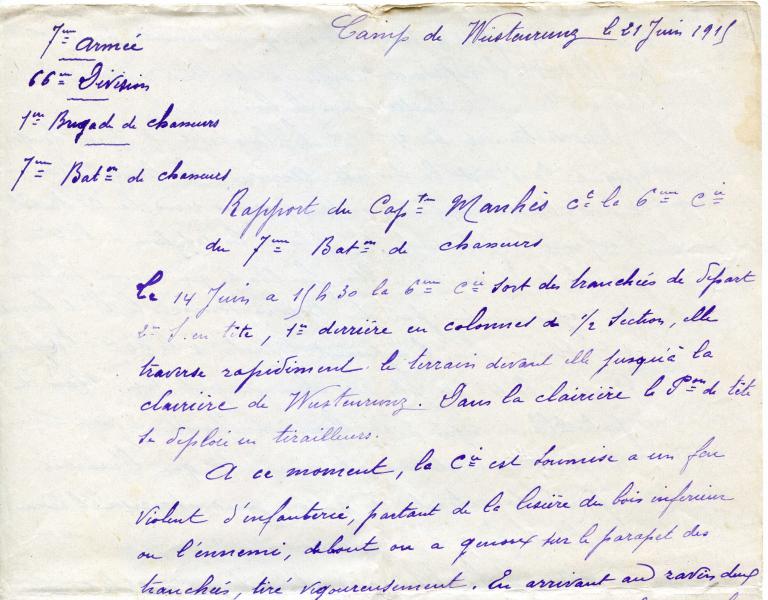 7me Armée
Camp de Wüstenrunz le 21 Juin 1915
66me Division
1ere Brigade de chasseurs
7me Baton de chasseurs
Rapport du Capne Manhès Ct la 6me Cie
du 7me Baton de chasseurs
Le 14 Juin a 15h30 la 6me Cie sort des tranchées de départ
2e S. en tête, 1e derrière en colonnes de 1/2 section, elle
traverse rapidiment le terrain devant elle jusqu'à la
clairière de Wustenrunz. Dans la clairière le Pon de tête
se deploie en tirailleurs.
A ce moment, la Cie est soumise a un feu
violent d'infanterie, partant de la lisière du bois inferieur
ou l'ennemi, debout ou a genoux sur le parapet des
tranchées, tiré vigoureusement. En arrivant au ravin deux